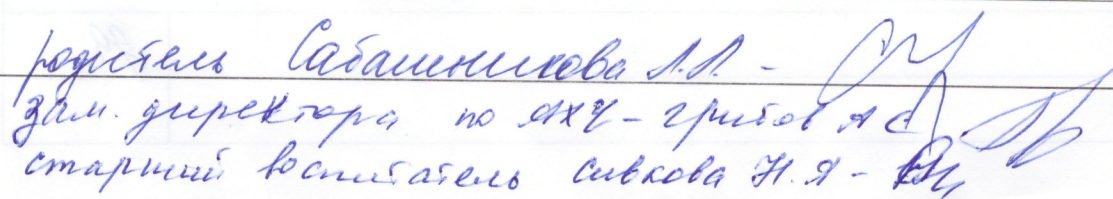 родитель Сабашникова Л.Л. -
зам. директора по АХЧ - Грибов А С
старший воспитатель Сивкова Н.Я -